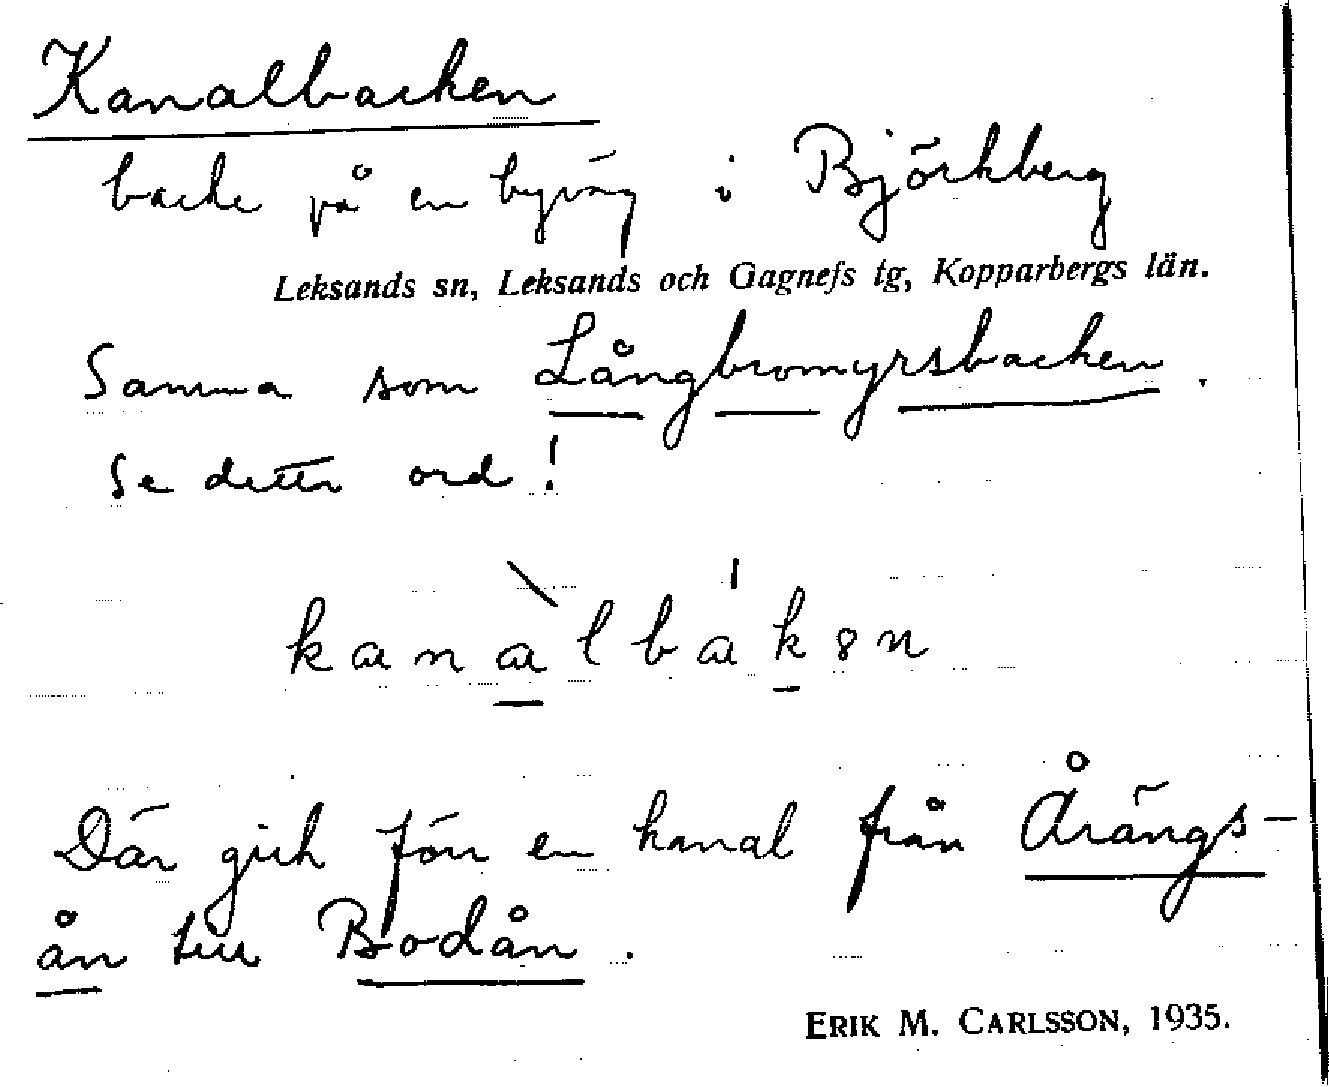 Kanalbacken
backe på en byväg i Björkberg
Leksands sn, Leksands och Gagnefs tg, Kopparbergs län.
Samma som Långbromyrsbacken.
Se detta ord!
kanalbakən
Där gick förr en kanal från Årängs-
ån till Bodån.
ERIK M. CARLSSON, 1935.